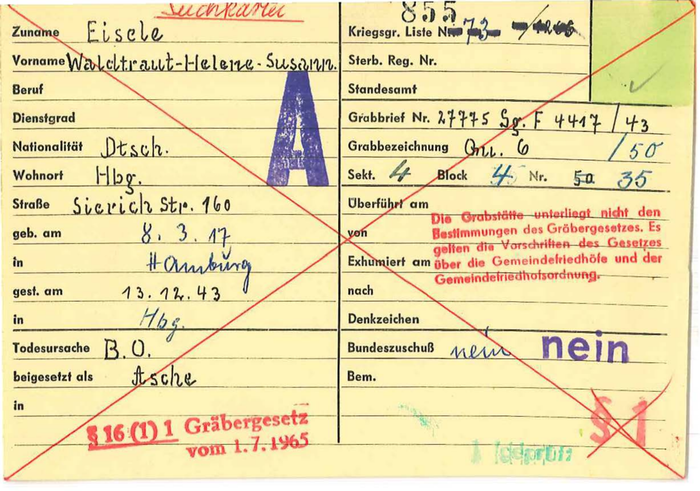 Suchkartei
Zuname Eisele
Vorname Waldtraut-Helene-Susann.
Beruf
Dienstgrad
A
Nationalität Dtsch.
Wohnort Hbg.
Straße Sierich Str. 160
geb. am 8.3.17
in Hamburg
gest. am 13.12.43
in Hbg.
Todesursache B.O.
beigesetzt als Asche
in
§ 16 (1) 1 Gräbergesetz
vom 1.7.1965
855
Kriegsgr. Liste Nr. 73
Sterb. Reg. Nr.
Standesamt
Grabbrief Nr. 27775 Sg. F 4417/43
Grabbezeichnung 6 /50
Sekt. 4 Block 45 Nr. 50 35
Überführt am
von
Die Grabstätte unterliegt nicht den
Bestimmungen des Gräbergesetzes. Es
gelten die Vorschriften des Gesetzes
über die Gemeindefriedhöfe und der
Gemeindefriedhofsordnung.
Exhumiert am
nach
Denkzeichen
Bundeszuschuß nein nein
Bem.
§ 1
geprüft